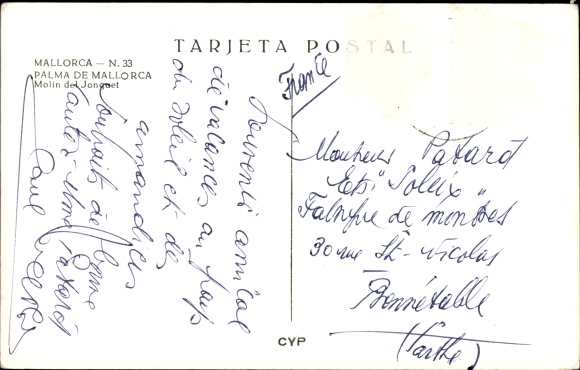 TARJETA POSTAL
MALLORCA – N. 33
PALMA DE MALLORCA
Molin del Jonquet
France
Souvenir amical
de vacances au pays
du soleil et des
amandiers
Souhaits de bonne
santé à Mme Patard
Monsieur Patard
Ets "Solux"
Fabrique de montres
30 rue St-Nicolas
Bonnétable
(Sarthe)
CYP